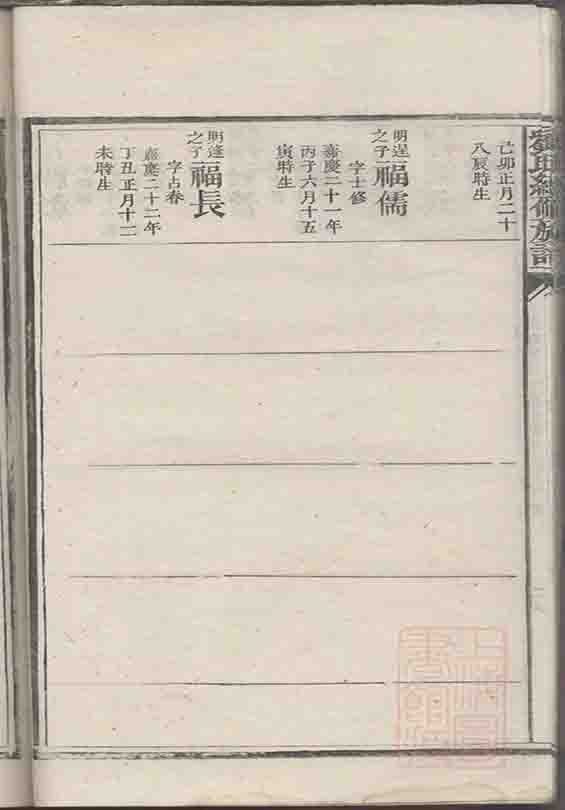 己卯正月二十
八辰時生
明逞
之子
福儒
字士修
嘉慶二十一年
丙子六月十五
寅時生
明達
之子
福長
字占春
嘉慶二十二年
丁丑正月十二
未時生
氏續修族譜